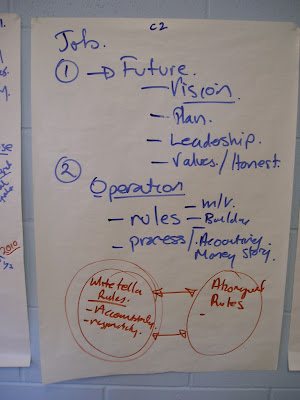 C2
Job.
① → Future.
— Vision
— Plan
— Leadership.
— Values./Honest.
② Operation
— rules — m/v.
— Builder
— process/. Accounting
Money story.
Whitefella Rules.
- Accountability.
- responsibility.
Aboriginal Rules
-
2010